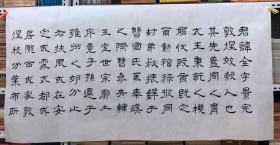 君諱全字景完
敦煌效穀人也
其先蓋周之胄
武王秉乾之機
翦伐殷商既定
爾勳福祿攸同
封弟叔振鐸于
曹國因氏焉秦漢
之際曹參夾輔
王室世宗廓土
斥竟子孫遷于
雍州之郊分止
右扶風或在安
定或處武都或
居隴西或家敦
煌枝分葉布所